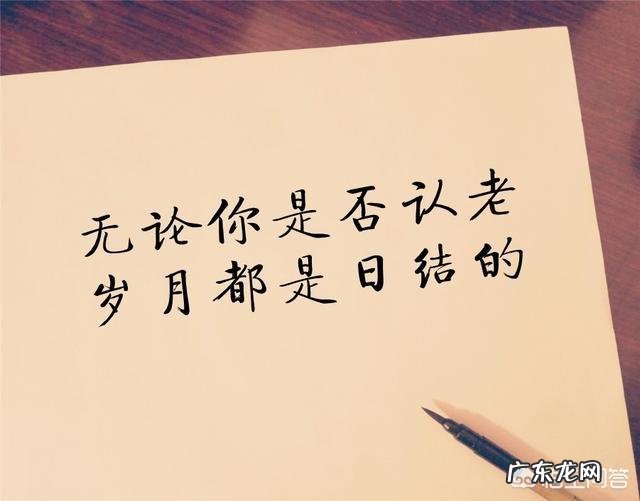 无论你是否认老
岁月都是日结的
广东龙网